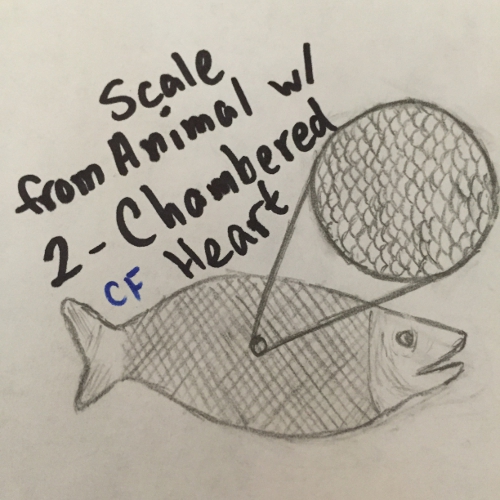 Scale
from Animal w/
2-Chambered
Heart
CF